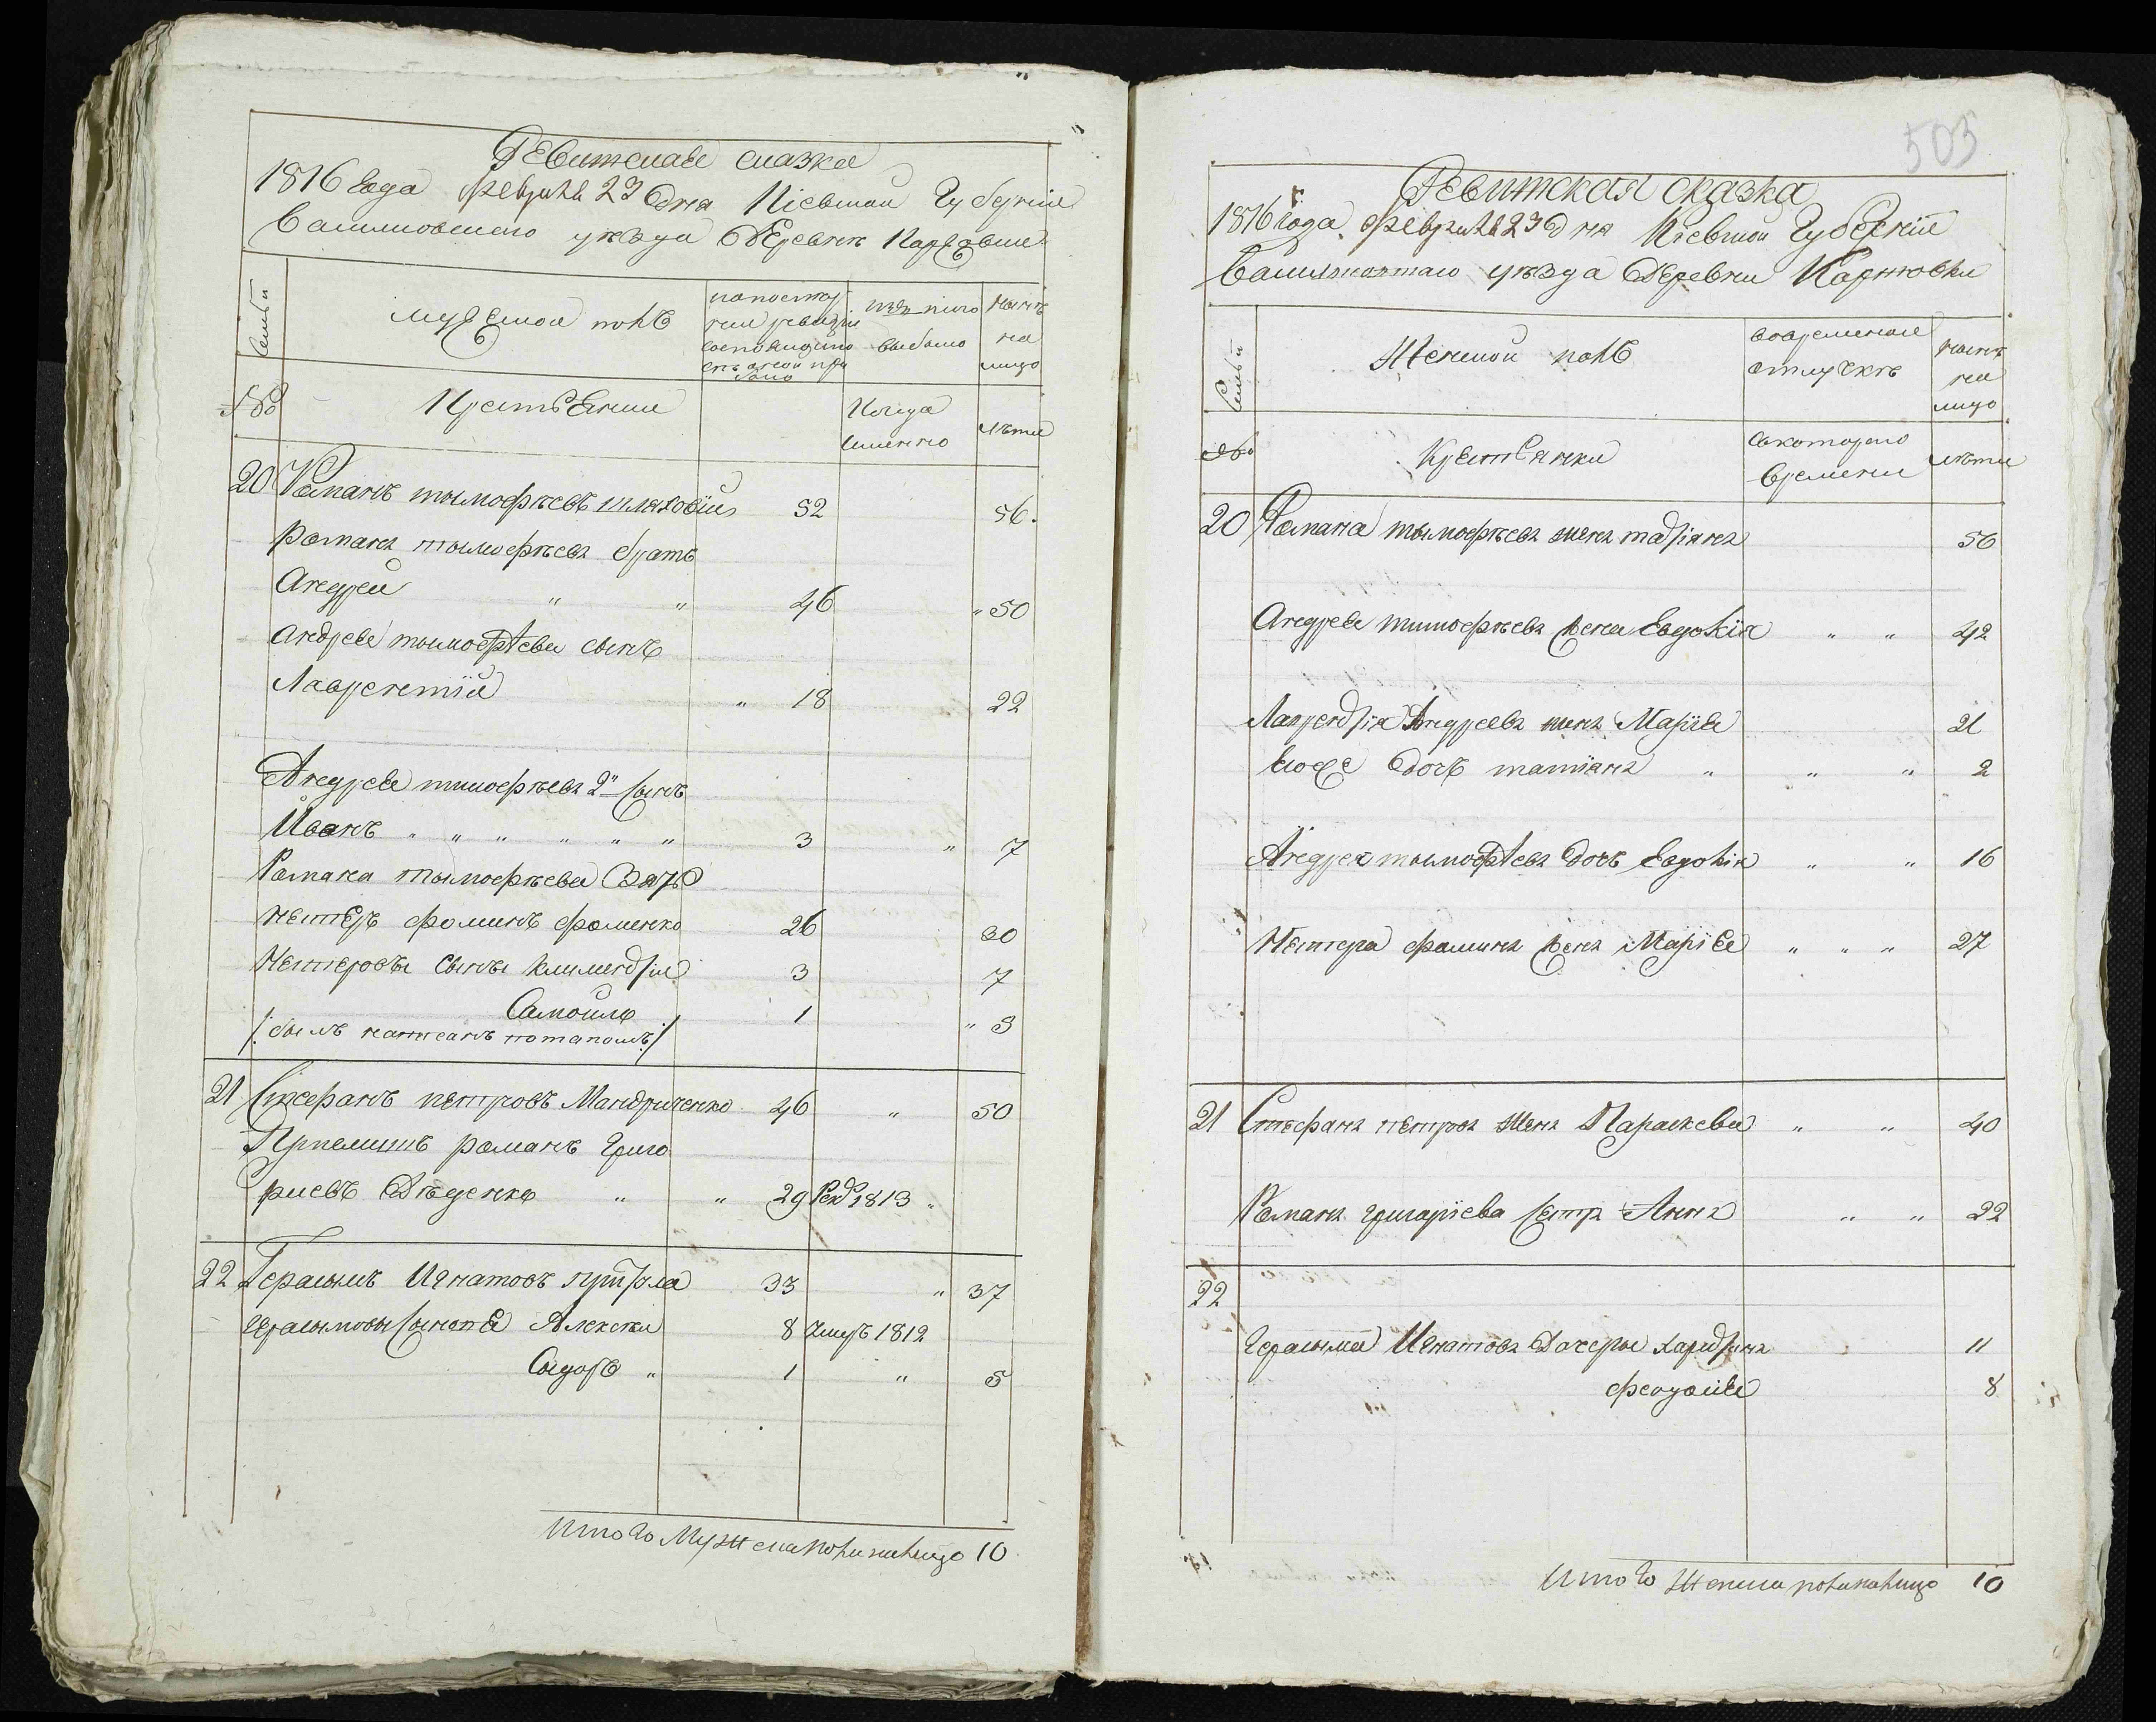 Ревитская сказка
1816 года февраля 23 дня Кіевской Губерніи
уезда Деревни Карповки
Семьи
мужеской полъ
попоследней ревизіи состояло
изъ того выбыло
нынѣ на лицо
№
Крестьянии
Когда именно
лѣта
20 Романъ тымофѣевъ шляховій 52 56.
Романа тымофѣева братъ
Андрей " " 46 " 50
Андрея тымофѣева сынъ
Лаврентій " 18 22
Андрея тимофѣева 2й сынъ
Иванъ " " " " " " 3 " 7
Романа тымофѣева Зять
петеръ фоминъ фоменко 26 30
петеровы сыны климентій 3 7
Самойло 1 " 3
/: былъ написанъ потапомъ :/
21 Стефанъ петровъ Мандриченко 46 " 50
Пріемышъ романъ Григо
риевъ Дѣденко " " 29 1813 "
22 Герасымъ Игнатовъ 33 " 37
Герасымовы сыновя Алексѣй 8 умеръ 1812
Сыдоръ " 1 " 5
Итого Мужеска пола налицо 10
503
Ревитская сказка
1816 года февраля 23 дня Кіевской Губерніи
уезда Деревни Карповки
Семьи
Женской полъ
вовременной отлучкѣ
нынѣ на лицо
№
Крестянки
скоторого времени
лѣта
20 Романа тымофѣева жена татіяна 56
Андрея тимофѣева жена Евдокія " " 42
Лаврентія Андреева жена Марія 21
Ево дочь татіяна " " " 2
Андрея тымофѣева дочь Евдокія " " 16
Петера фомина жена Марія " " " 27
21 Стефана петрова жена Параскева " " 40
Романа григоріева сестра Анна " " 22
22
Герасыма Игнатова дочеры харитина 11
феодосія 8
Итого Женска пола налицо 10